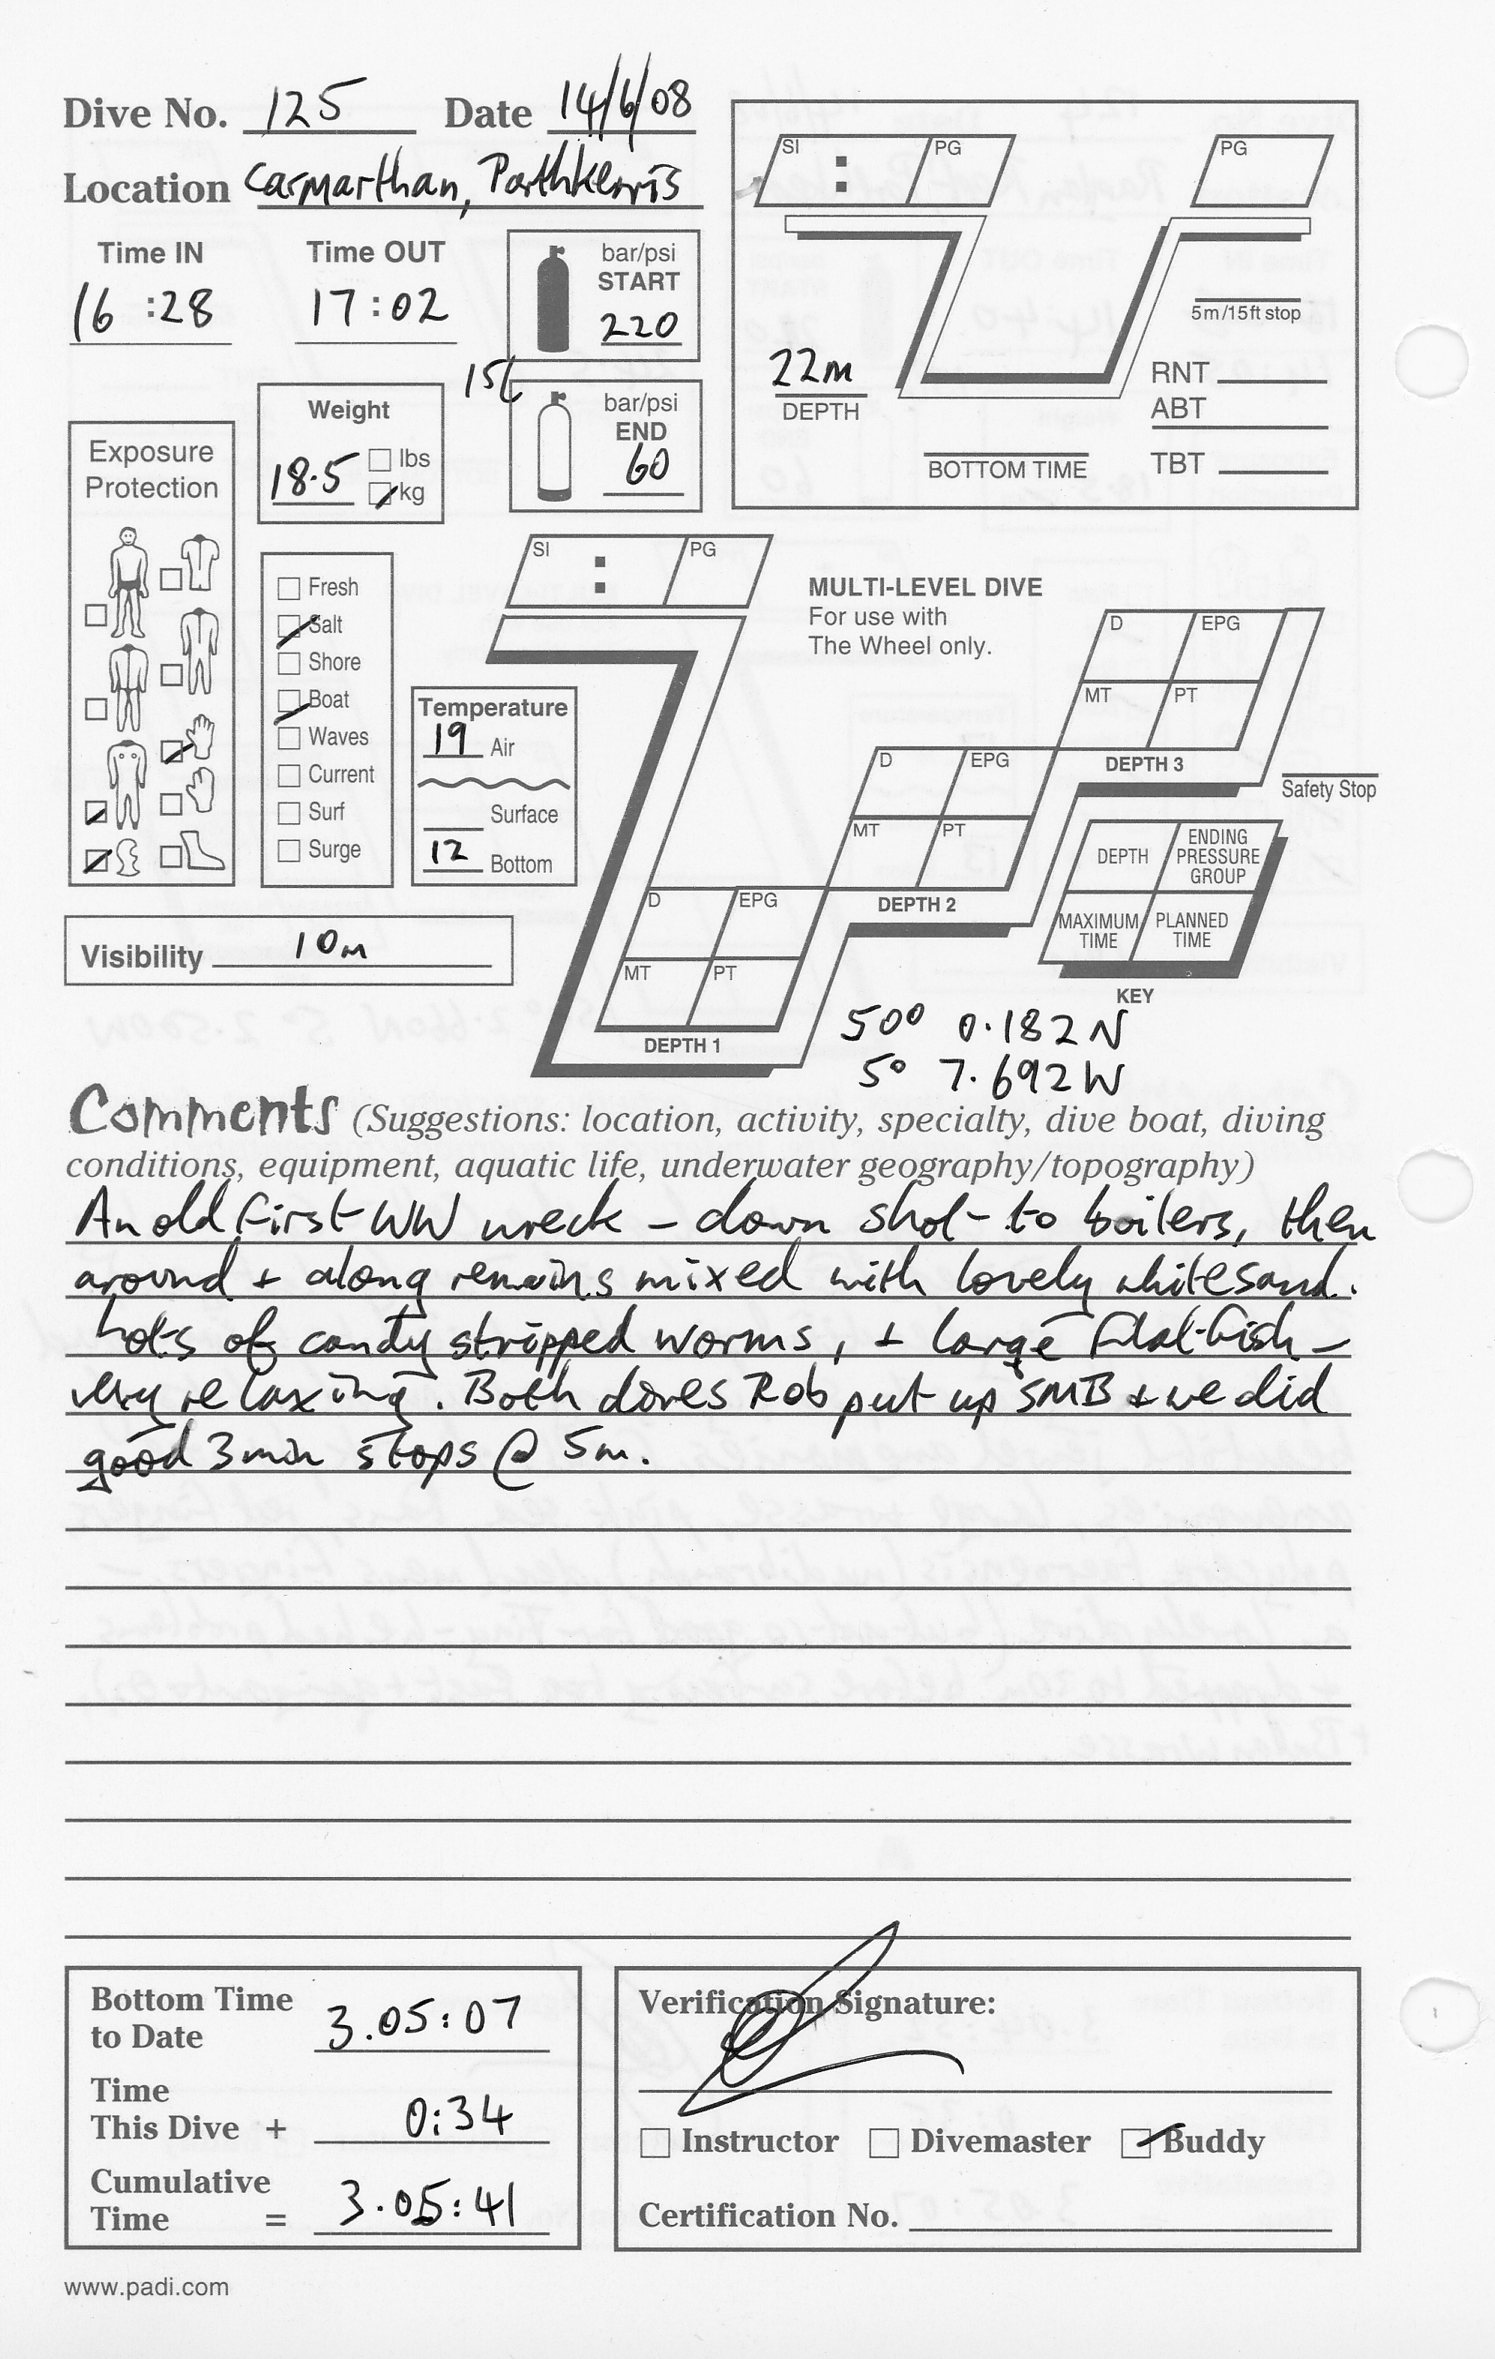 Dive No. 125 Date 14/6/08
Location Carmarthan, Porthkerris
Time IN Time OUT
16 :28 17:02
bar/psi
START
220
15L
bar/psi
END
60
Weight
18.5 lbs
kg
Exposure
Protection
Fresh
Salt
Shore
Boat
Waves
Current
Surf
Surge
Temperature
19 Air
Surface
12 Bottom
Visibility 10m
SI : PG
PG
22m
DEPTH
BOTTOM TIME
5m/15ft stop
RNT
ABT
TBT
SI : PG
MULTI-LEVEL DIVE
For use with
The Wheel only.
D EPG
MT PT
DEPTH 3
Safety Stop
D EPG
MT PT
DEPTH 2
D EPG
MT PT
DEPTH 1
DEPTH ENDING PRESSURE GROUP
MAXIMUM TIME PLANNED TIME
KEY
50° 0.182N
5° 7.692W
Comments (Suggestions: location, activity, specialty, dive boat, diving
conditions, equipment, aquatic life, underwater geography/topography)
An old First WW wreck - down shot to boilers, then
around + along remains mixed with lovely white sand.
Lots of candy stripped worms, + large flat-fish -
very relaxing. Both dives Rob put up SMB + we did
good 3 min stops @ 5m.
Bottom Time
to Date 3.05:07
Time
This Dive + 0:34
Cumulative
Time = 3.05:41
Verification Signature:
Instructor Divemaster Buddy
Certification No.
www.padi.com